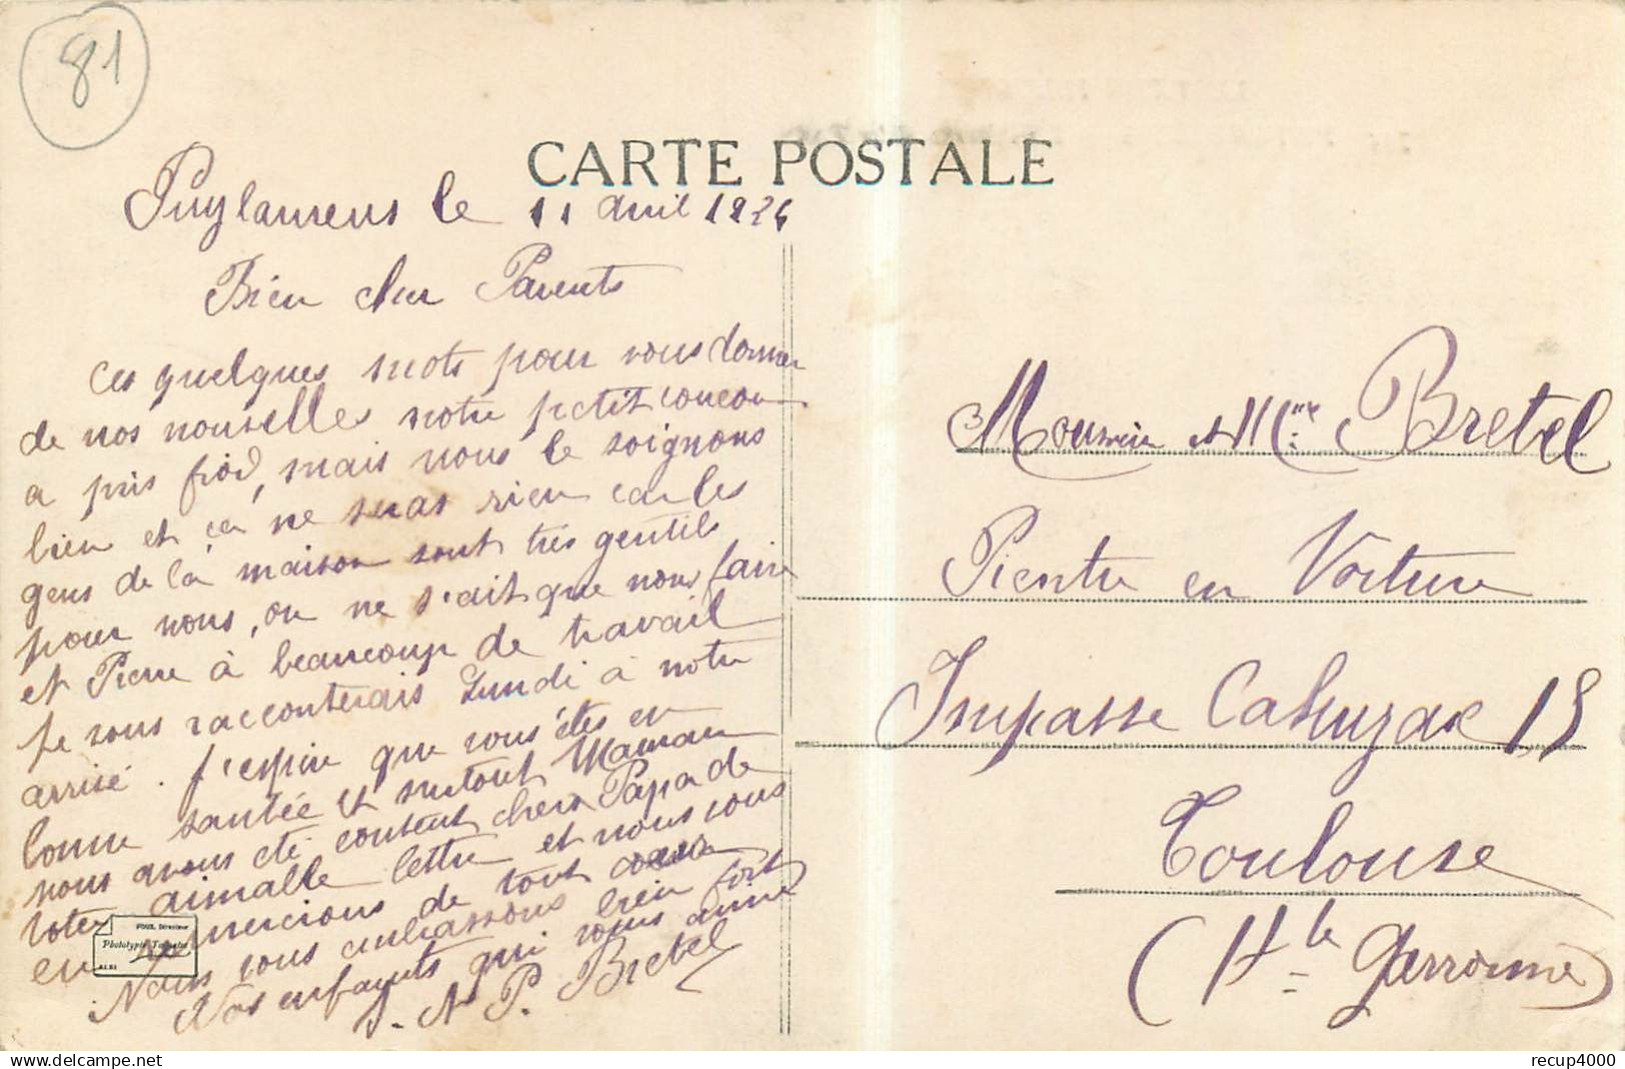 81
CARTE POSTALE
Puylaurens le 11 avril 1926
Bien cher Parents
Ces quelques mots pour vous donner
de nos nouvelles notre petit coucou
a pris froid, mais nous le soignons
bien et ça ne seras rien car les
gens de la maison sont très gentils
pour nous, on ne s'ait que nous faire
et Pierre à beaucoup de travail
Je vous racconterais Lundi à notre
arrivé. J'espère que vous êtes en
bonne santée et surtout Maman
nous avons été content chers Papa de
votre aimable lettre et nous vous
en remercions de tout coeur
Nous vous embrassons bien fort
Vos enfants qui vous aime
J. et P. Bretel
POUX, Directeur
Phototypie Tarnaise
ALBI
Monsieur et Mme Bretel
Pientre en Voiture
Impasse Cahuzac 15
Toulouse
(Hte Garronne)
recup4000